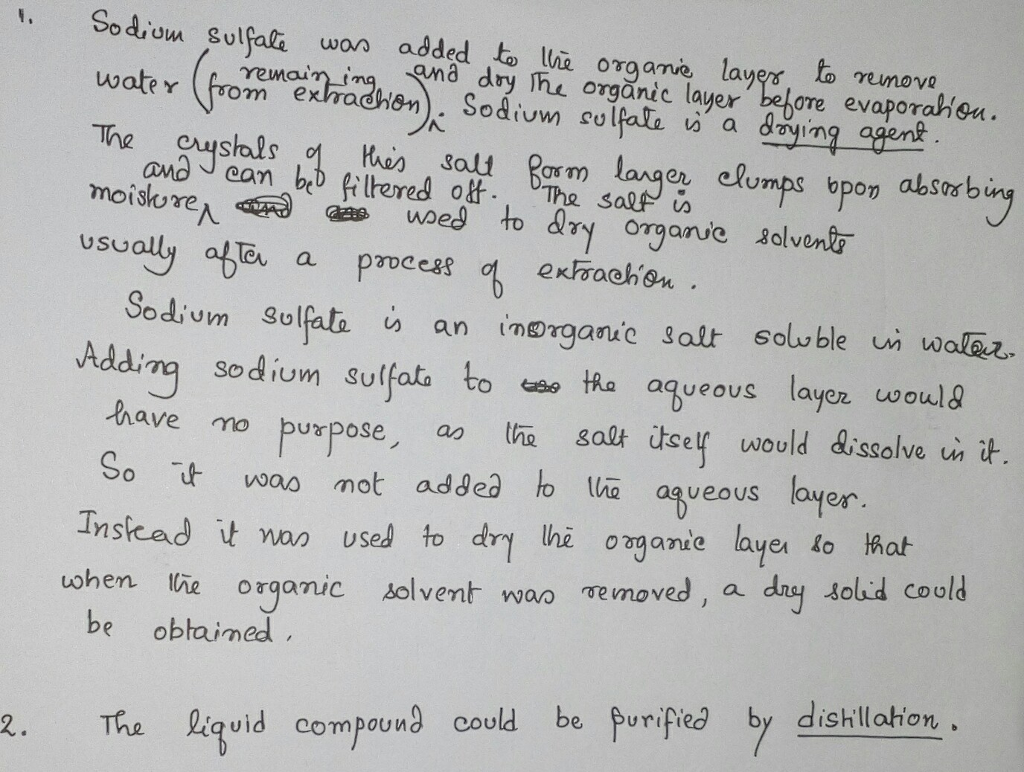 1. Sodium sulfate was added to the organic layer to remove
water (remaining from extraction) and dry the organic layer before evaporation.
Sodium sulfate is a drying agent.
The crystals of this salt form larger clumps upon absorbing
moisture and can be filtered off. The salt is used to dry organic solvents
usually after a process of extraction.
Sodium sulfate is an inorganic salt soluble in water.
Adding sodium sulfate to the aqueous layer would
have no purpose, as the salt itself would dissolve in it.
So it was not added to the aqueous layer.
Instead it was used to dry the organic layer so that
when the organic solvent was removed, a dry solid could
be obtained.
2. The liquid compound could be purified by distillation.